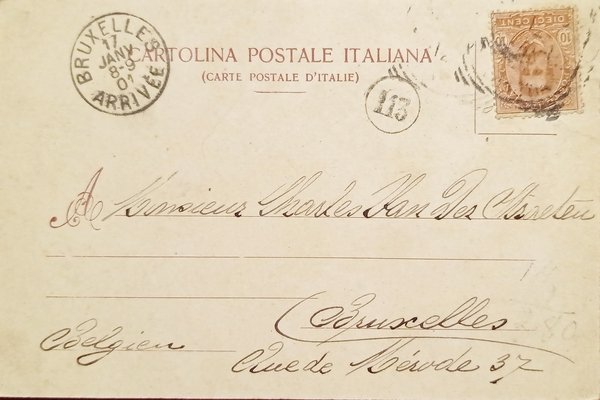 BRUXELLES
17
JANV
8-9
01
ARRIVÉE
CARTOLINA POSTALE ITALIANA
(CARTE POSTALE D'ITALIE)
113
DIECI CENT
10 10
A Monsieur Charles Van Der
Bruxelles
Belgien
Rue de Mérode 37